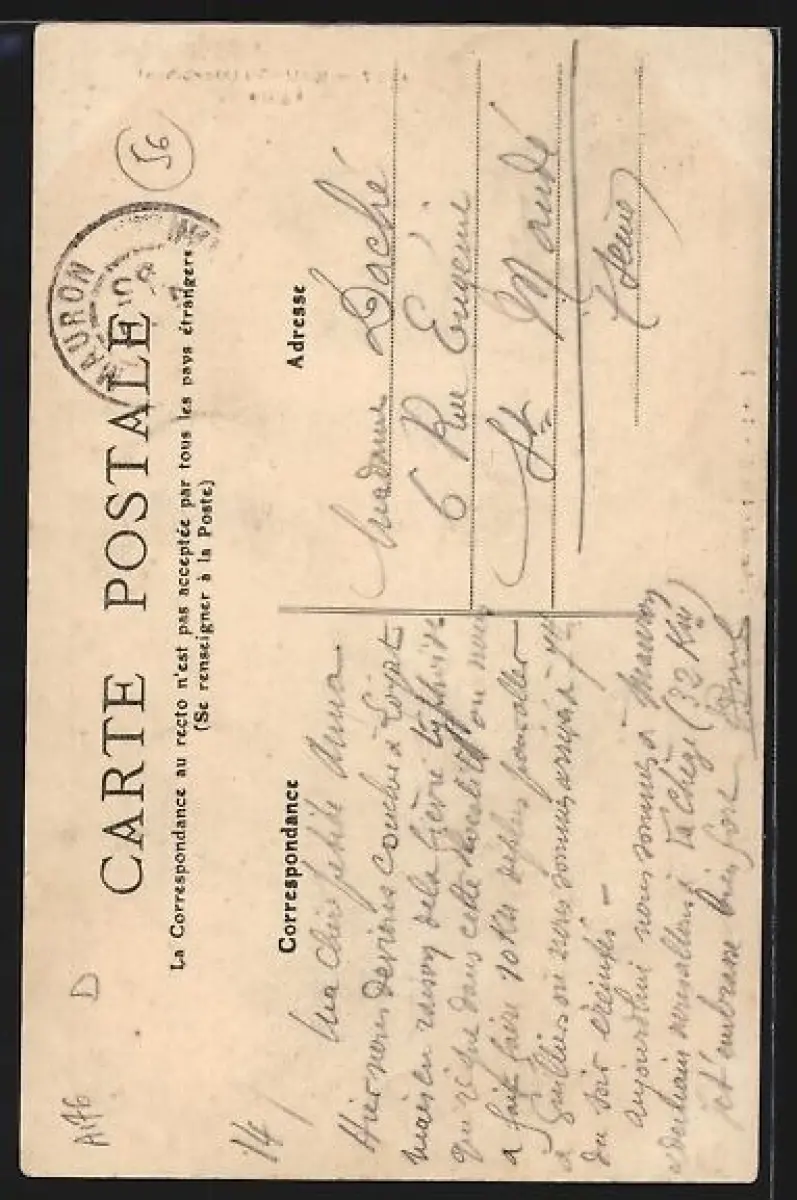 CARTE POSTALE
La Correspondance au recto n'est pas acceptée par tous les pays étrangers
(Se renseigner à la Poste)
MAURON
56
A176
D
Correspondance
14
Ma chère petite
Hier nous devions coucher à
mais en raison de la fièvre typhoïde
qui règne dans cette localité on nous
a fait faire 10 Km de plus pour aller
à Guilliers où nous sommes arrivés à 7h
du soir éreintés -
aujourd'hui nous sommes à Mauron
demain nous allons à la Chèze (32 Km)
je t'embrasse bien fort
Adresse
Madame Daché
6 Rue Eugénie
St Mandé
(Seine)